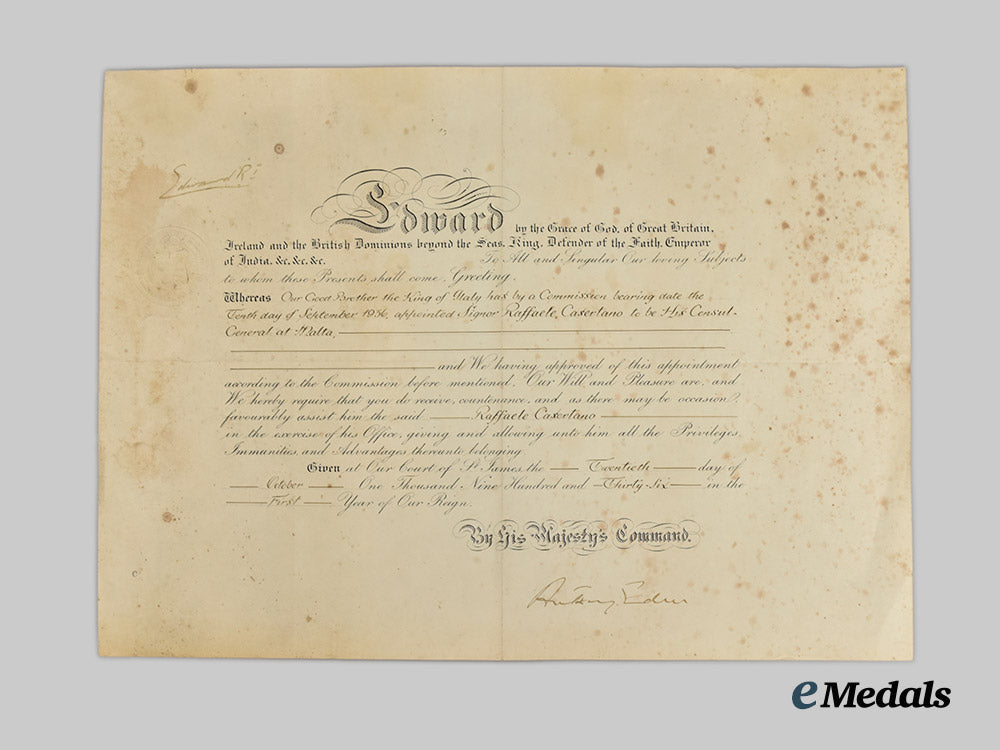 Edward R.I.
Edward by the Grace of God, of Great Britain,
Ireland and the British Dominions beyond the Seas, King, Defender of the Faith, Emperor
of India, &c. &c. &c. To All and Singular Our loving Subjects
to whom these Presents shall come, Greeting.
Whereas Our Good Brother the King of Italy has by a Commission bearing date the
Tenth day of September 1936, appointed Signor Raffaele Casertano to be His Consul-
General at Malta,
and We having approved of this appointment
according to the Commission before mentioned, Our Will and Pleasure are, and
We hereby require that you do receive, countenance, and as there may be occasion,
favourably assist him the said Raffaele Casertano
in the exercise of his Office, giving and allowing unto him all the Privileges,
Immunities and Advantages thereunto belonging
Given at Our Court of St James, the Twentieth day of
October One Thousand Nine Hundred and Thirty-Six in the
First Year of Our Reign.
By His Majesty's Command.
Anthony Eden
eMedals